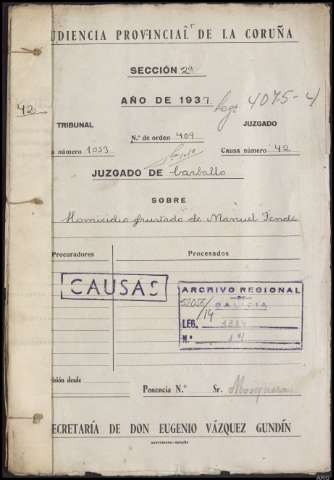 UDIENCIA PROVINCIAL DE LA CORUÑA
SECCIÓN 2ª
AÑO DE 1937 Leg. 4075-4
42
TRIBUNAL JUZGADO
N.º de orden 409
a número 1033 Causa número 42
JUZGADO DE Carballo
SOBRE
Homicidio frustado de Manuel
Procuradores Procesados
CAUSAS
ARCHIVO REGIONAL
DE
GALICIA
LEG.
N.º
isión desde
Ponencia N.º Sr. Mosquera
ECRETARÍA DE DON EUGENIO VÁZQUEZ GUNDÍN